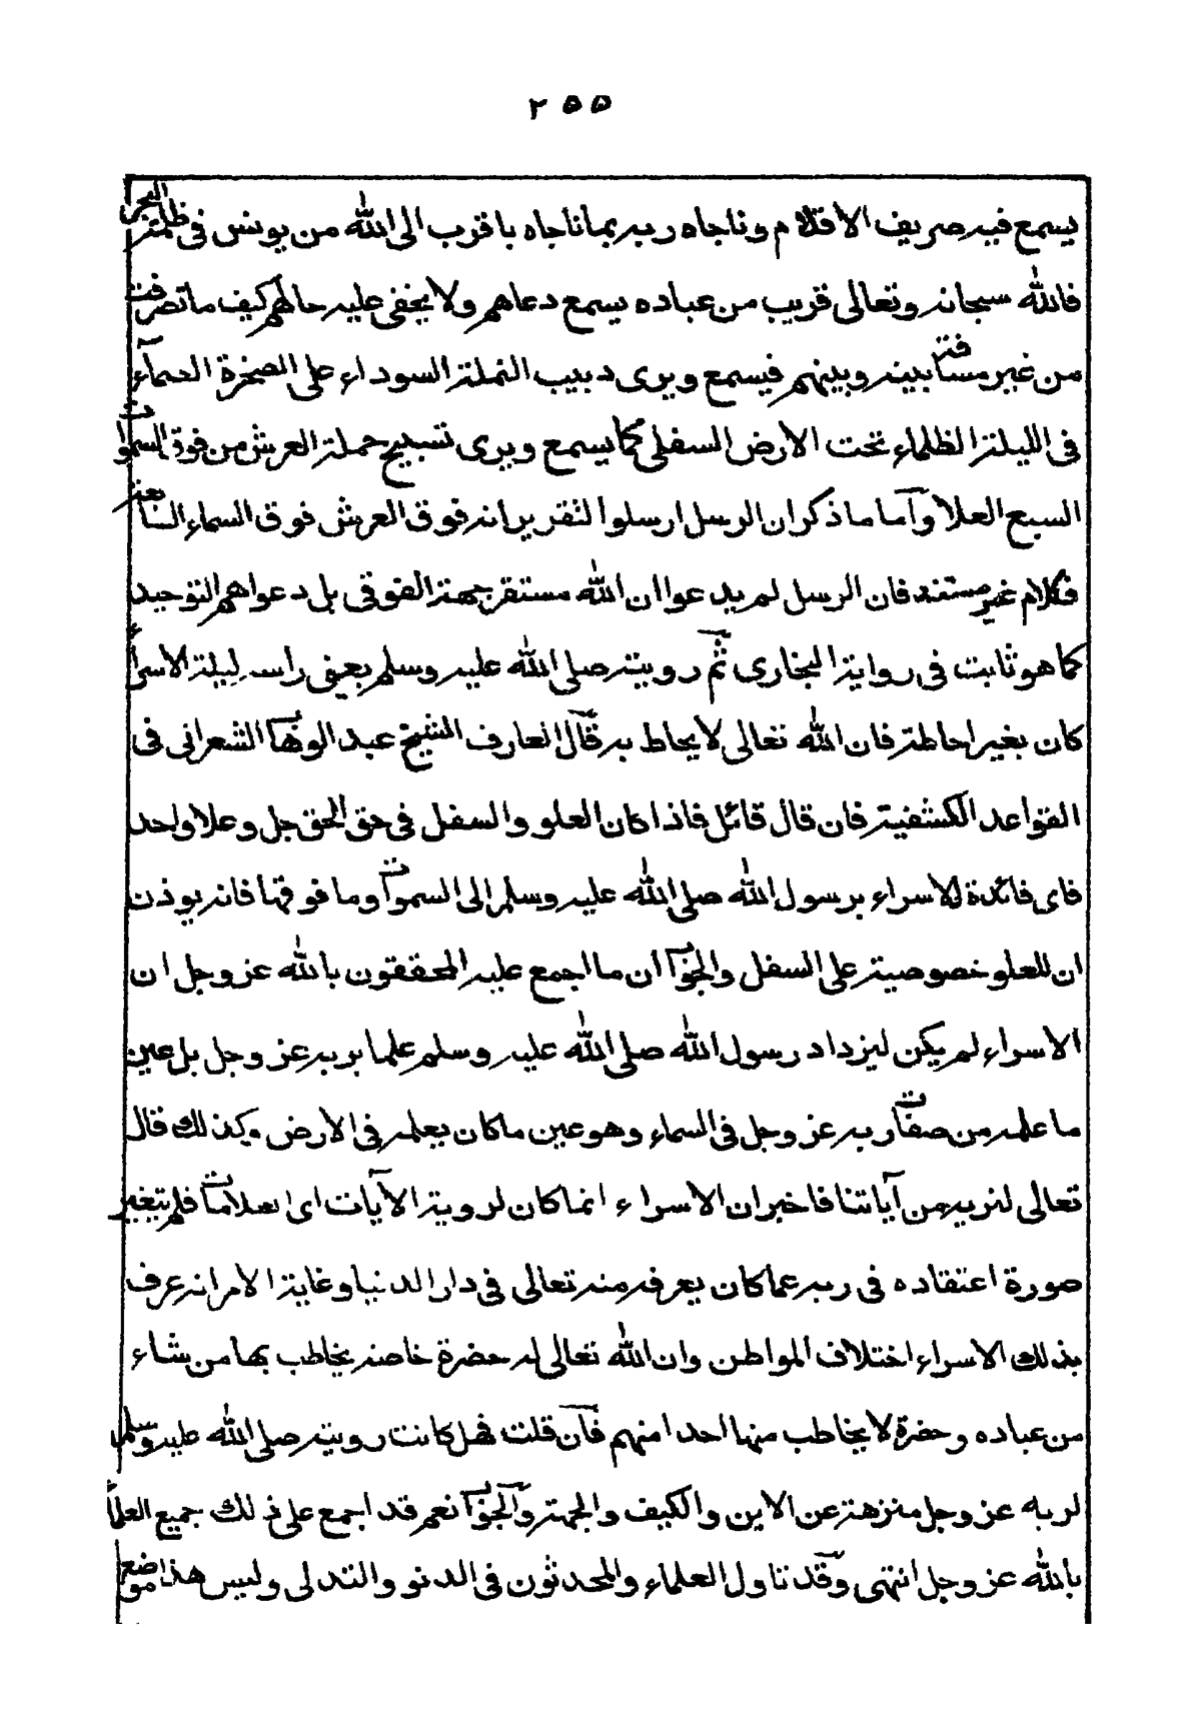 ٢٥٥
يسمع فيه صريف الاقلام وناجاه ربه بما ناجاه باقرب الى الله من يونس في ظلمة البحر
فالله سبحانه وتعالى قريب من عباده يسمع دعاهم ولا يخفى عليه حالهم كيف ما تصرفت
من غير مسافة بينه وبينهم فيسمع ويرى دبيب النملة السوداء على الصخرة الصمآء
في الليلة الظلماء تحت الارض السفلى كما يسمع ويرى تسبيح حملة العرش من فوق السموات
السبع العلا وآما ما ذكر ان الرسل ارسلوا لتقرير انه فوق العرش فوق السماء السابعة
فكلام غير مستند فان الرسل لم يدعوا ان الله مستقر جهة الفوق بل دعواهم التوحيد
كما هو ثابت في رواية البخاري ثم رويته صلى الله عليه وسلم بعيني راسه ليلة الاسراء
كان بغير احاطة فان الله تعالى لا يحاط به قال العارف الشيخ عبد الوهاب الشعراني في
القواعد الكشفية فان قال قائل فاذا كان العلو والسفل في حق الحق جل وعلا واحد
فاى فائدة للاسراء برسول الله صلى الله عليه وسلم الى السموات وما فوقها فانه يوذن
ان للعلو خصوصية على السفل والجواب ان ما اجمع عليه المحققون بالله عز وجل ان
الاسراء لم يكن ليزداد رسول الله صلى الله عليه وسلم علما بربه عز وجل بل عين
ما علمه من صفات ربه عز وجل في السماء وهو عين ما كان يعلمه في الارض وكذلك قال
تعالى لنريه من آياتنا فاخبر ان الاسراء انما كان لروية الآيات اى العلامات فلم يتغير
صورة اعتقاده في ربه عما كان يعرفه منه تعالى في دار الدنيا وغاية الامر انه عرف
بذلك الاسراء اختلاف المواطن وان الله تعالى له حضرة خاصة يخاطب بها من يشاء
من عباده وحضرة لا يخاطب منها احدا منهم فآن قلت فهل كانت رويته صلى الله عليه وسلم
لربه عز وجل منزهة عن الاين والكيف والجهة وآلجواب نعم قد اجمع على ذلك جميع العلماء
بالله عز وجل انتهى وقد تاول العلماء والمحدثون في الدنو والتدلى وليس هذا موضع